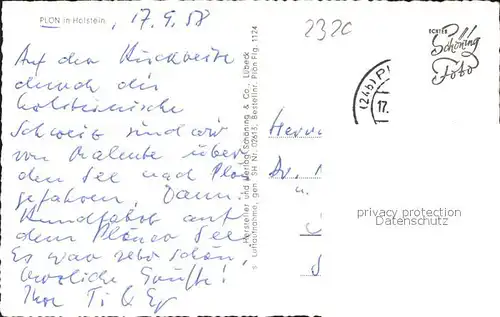 PLÖN in Holstein, 17.9.58
2320
ECHTES
Schöning
Foto
(24b) Pl
17.
Auf der Rückreise
durch die
holsteinische
Schweiz sind wir
von Malente über
den See nach Plön
gefahren. Dann
Rundfahrt auf
dem Plöner See
Es war sehr schön,
herzliche Grüße!
Ihre
Herrn
Dr.
u.
Hersteller und Verlag Schöning & Co., Lübeck
Luftaufnahme, gen. SH Nr. 02613, Bestellnr. Plön Flg. 1124
privacy protection
Datenschutz